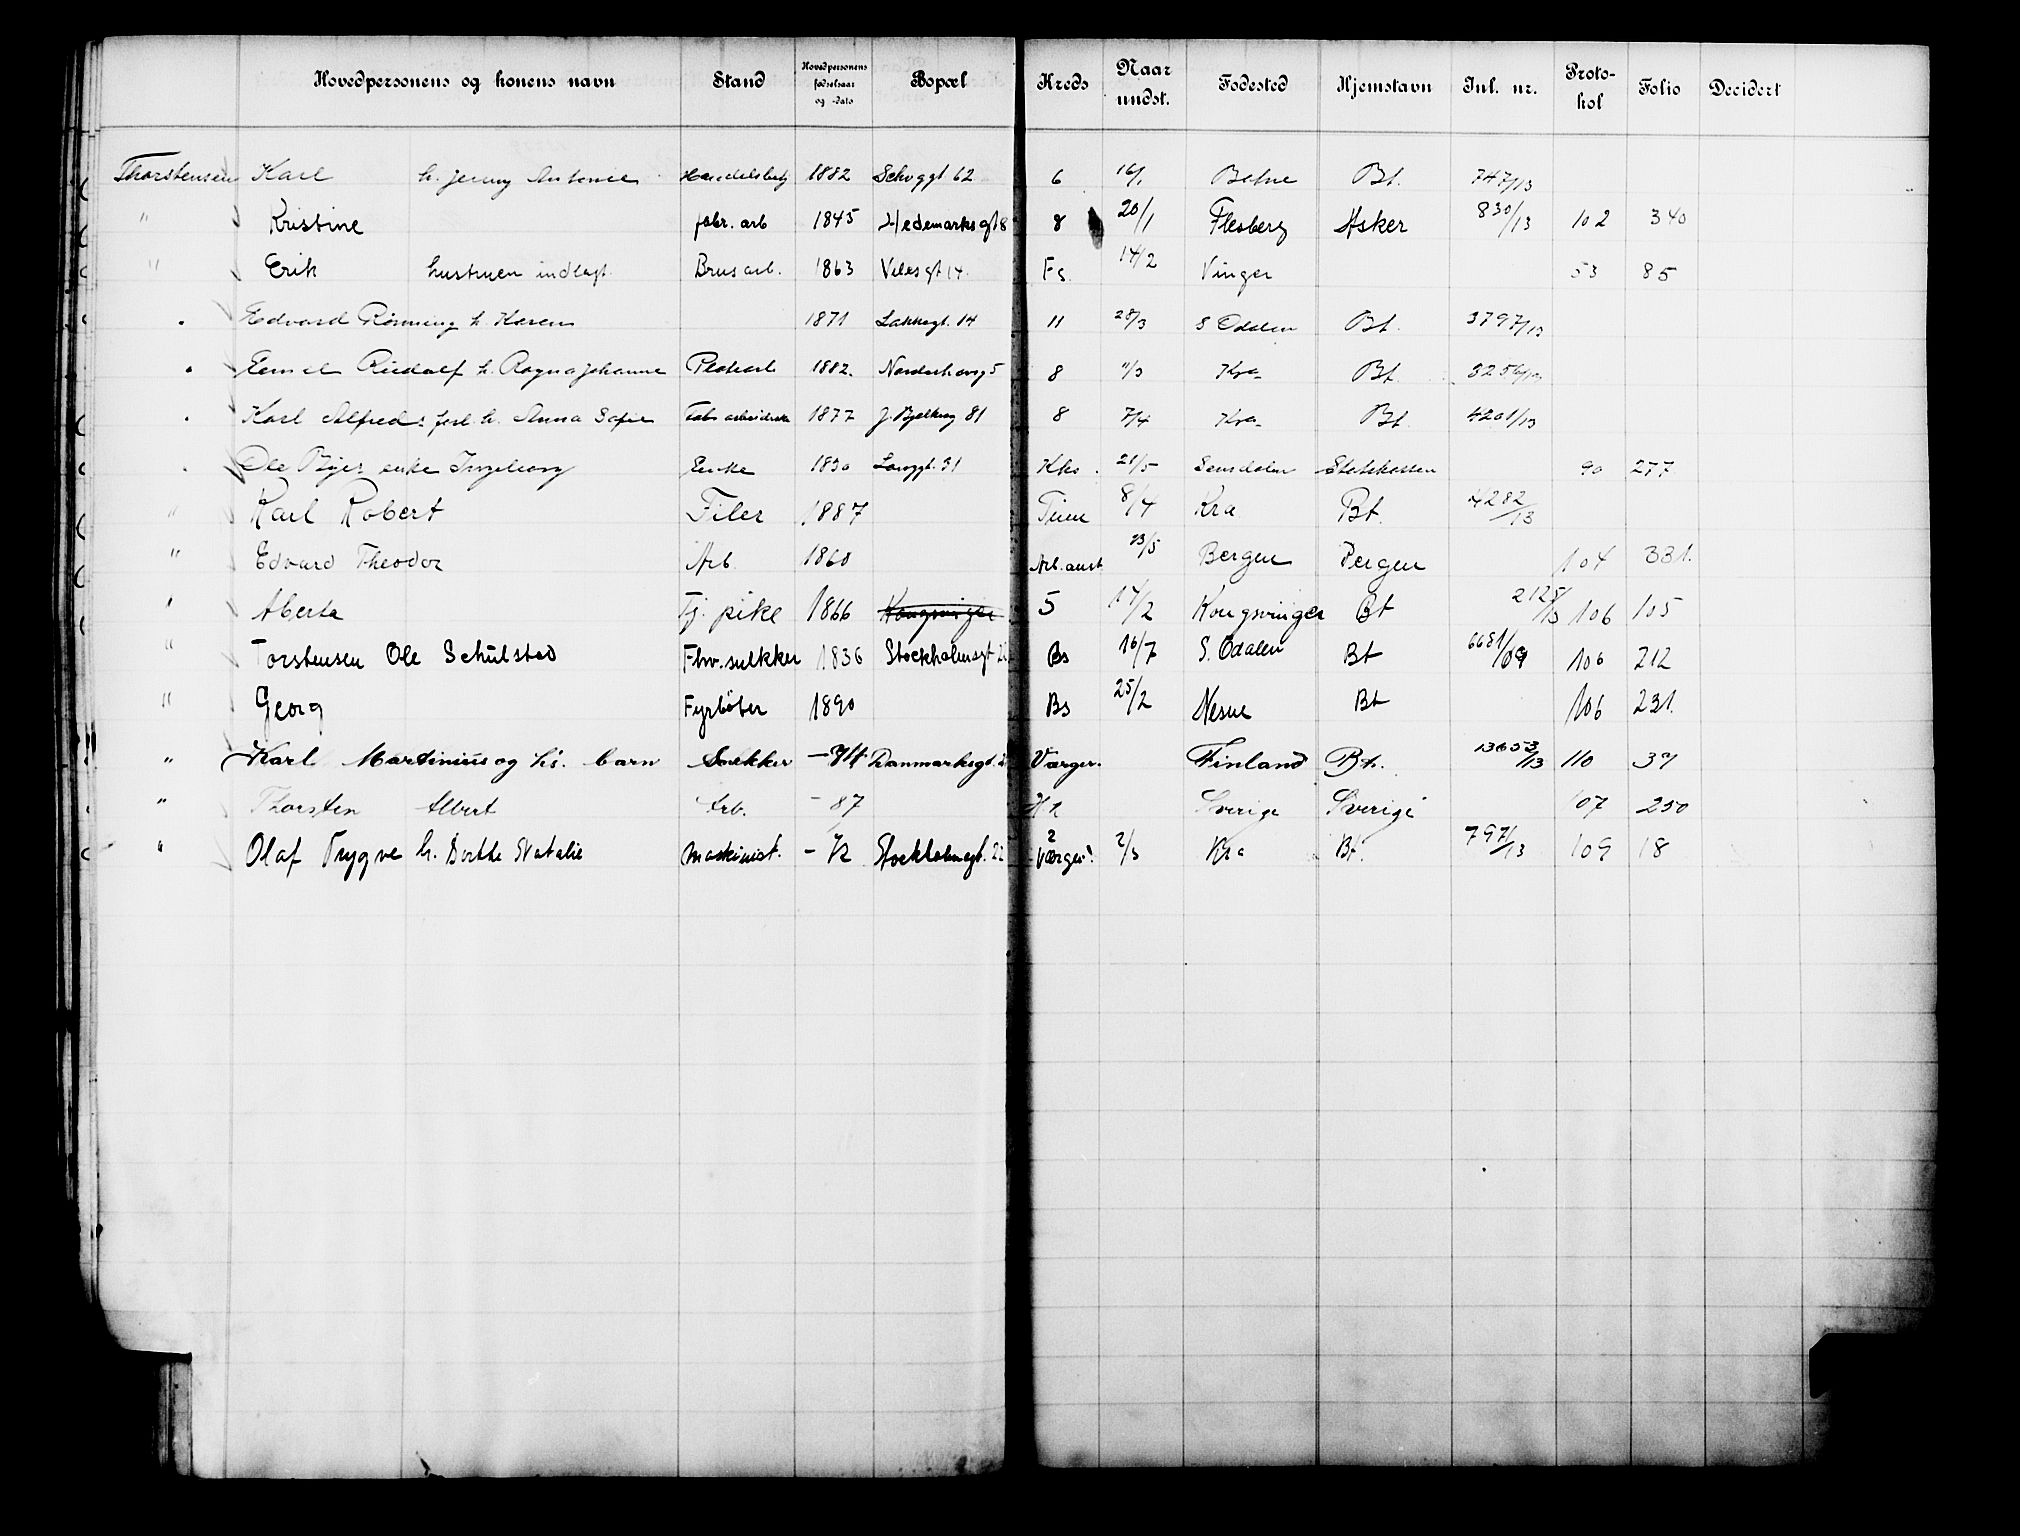 Hovedpersonens og konens navn Stand Hovedpersonens fødselsaar og -dato Bopæl Kreds Naar undst. Fødested Hjemstavn Jnl. nr. Protokol Folio Decidert
Thorstensen Karl h. Jenny Antonie 1882 Schvggt 62 6 16/1 Bt. 747/13
" Kristine fabr. arb 1845 Hedemarksgt 8 8 20/1 Flesberg Asker 830/13 102 340
" Erik hustruen indlagt. Brusarb. 1863 Velesgt 14. Fs. 14/2 Vinger 53 85
" Edvard Rønning h. Karen 1871 Lakkegt. 14 11 28/3 S Odalen Bt. 3797/13
" Rudolf h. Ragna Johanne 1882. 5 8 11/3 Kra Bt.
" Karl Alfred: h. Anna Sofie 1877 81 8 7/4 Kra Bt. 4201/13
" Ole enke Ingeborg Enke 1830 Langgt. 31 Kks. 21/5 Statskassen 90 277
" Karl Robert Filer 1887 8/4 Kra Bt. 4282/13
" Edvard Theodor Arb. 1860 Arb.anst 13/5 Bergen Bergen 104 331.
" Aberta Tj. pike 1866 Kongsvinger 5 14/2 Kongsvinger Bt 2125/13 106 105
" Torstensen Ole Schulstad Fhv. snekker 1836 Stockholmsgt 22 Bs 16/7 S. Odalen Bt 6681/09 106 212
" Georg Fyrbøter 1890 Bs 25/2 Nesne Bt 106 231.
" Karl Martinius og hs. barn Snekker Danmarksgt. Værger. Finland Bt. 13653/13 110 39
" Thorsten Albert Arb. - 87 Sverige Sverige 107 250
" Olaf Trygve h. Dorthe Natalie Maskinist. - 72 Stockholmsgt. 22 2 Værger! 2/3 Kra Bt. 797/13 109 18